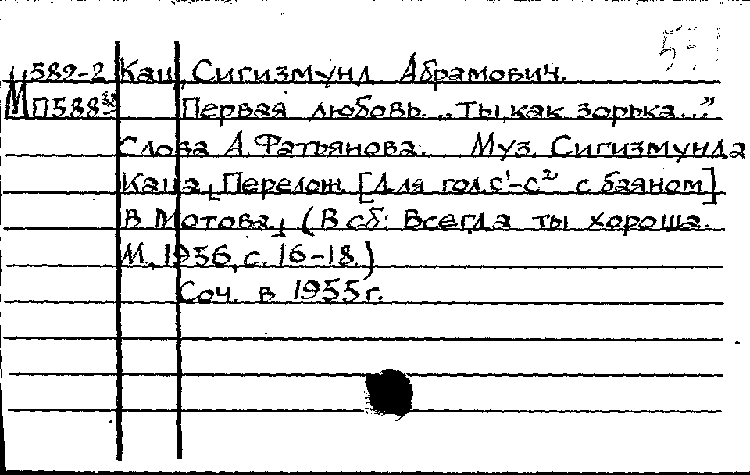 Ц589-2 Кац, Сигизмунд Абрамович.
МП588 Первая любовь. „Ты, как зорька..."
Слова А. Фатьянова. Муз. Сигизмунда
Каца, Перелож. [Для гол. c¹-c² с баяном]
В. Мотова. (В сб: Всегда ты хороша.
М., 1956, с. 16-18.)
Соч. в 1955 г.